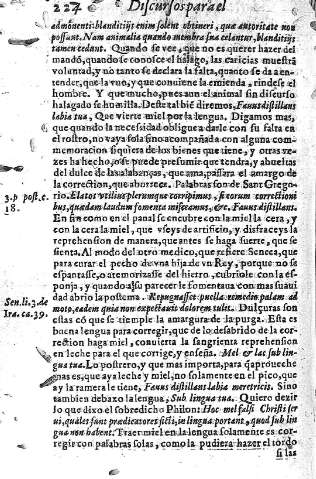 224 Discursos para el
admonenti: blanditijs enim solent obtineri, quæ autoritate non
possunt. Nam animalia quando membra sua celantur, blanditijs
tamen cedunt. Quando se vee, que no es querer hazer del
mandó, quando se conoce el halago, las caricias muestrá
voluntad, y no tanto se declara la falta, quanto se da a en-
tender, que la vuo, y que conuiene la emienda, rindese el
hombre. Y que mucho, pues aun el animal sin discurso
halagado se humilla. Deste tal bié diremos, Fauus distillans
labia tua, Que vierte miel por la lengua. Digamos mas,
que quando la necesidad obligue a darle con su falta en
el rostro, no vaya sola sino acompañada con alguna com-
memoracion siquiera de los bienes que tiene, y otras ve-
zes ha hecho, q̃ se puede presumir que tendra, y abueltas
del dulce de las alabanças, que ama, passara el amargo de
la correction, que aborrece. Palabras son de Sant Grego-
3.p. post. c. rio. Elatos vtilius plerumque corripimus, si eorum correctioni
18. bus, quædam laudum fomenta misceamus, &c. Fauus distillans.
En fin como en el panal se encubre con la miel la cera, y
con la cera la miel, que vseys de artificio, y disfraceys la
reprehension de manera, que antes se haga fuerte, que se
sienta. Al modo del otro medico, que refiere Seneca, que
para curar el pecho de vna hija de vn Rey, porque no se
espantasse, o atemorizasse del hierro, cubriole con la es-
ponja, y quando a su parecer le fomentaua con mas suaui
Sen. li. 3. de dad abrio la postema. Repugnasset puella remedio palam ad
Ira. ca. 39. moto, eadem quia non expectauit dolorem tulit. Dulçuras son
estas có que se temple la amargura de la purga. Esta es
buena lengua para corregir, que de lo desabrido de la cor-
rection haga miel, conuierta la sangrienta reprehension
en leche para el que corrige, y enseña. Mel & lac sub lin-
gua tua. Lo postrero, y que mas importa, para q̃ aproueche
mas es, que aya leche y miel, no solamente en el pico, que
ay la ramera le tiene, Fauus distillans labia meretricis. Sino
tambien debaxo la lengua, Sub lingua tua. Quiero dezir
lo que dixo el sobredicho Philon: Hoc mel falsi Christi ser
ui, quales sunt prædicatores ficti, in lingua portant, quod sub lin
gua non habent. Traer miel en la lengua solamente es cor-
regir con palabras solas, como la pudiera hazer el tordo
si las